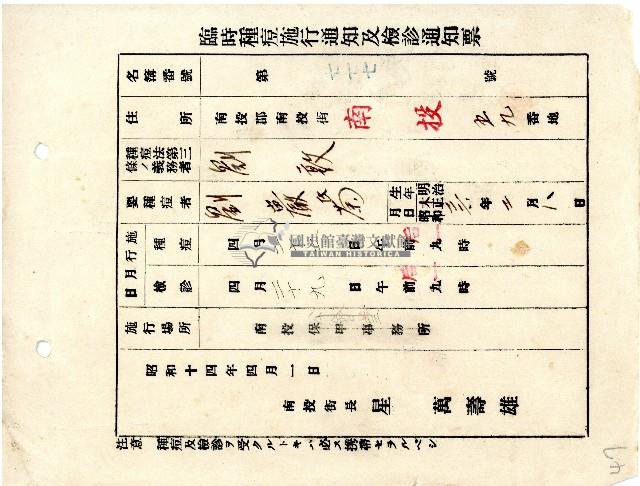 臨時種痘施行通知及檢診通知票
名簿番號 第 七十七 號
住所 南投郡南投街 南投 五九 番地
種痘法第三條ノ義務者 劉
要種痘者 劉 菊 生年月日 明治大正昭和 年 月 八 日
施行月日 種痘 四月 日午前 九時
檢診 四月二十九日午前 九時
施行場所 南投保甲事務所
昭和十四年四月一日
南投街長 星 萬壽雄
注意 種痘及檢診ヲ受クルトキハ必ス携帶セラルベシ
國史館臺灣文獻館
TAIWAN HISTORICA
47